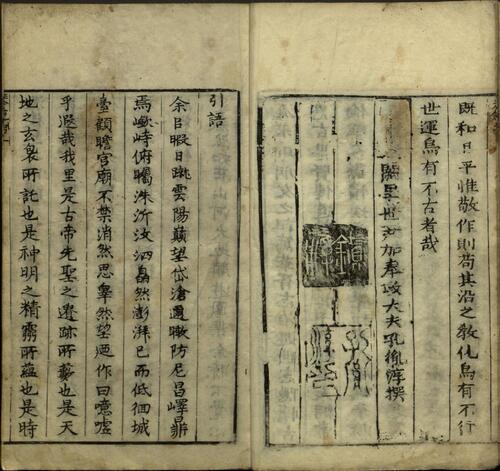 既和且平惟敬作則苟其沿之教化烏有不行
世運烏有不古者哉
世尹加奉政大夫孔胤淳撰
引語
余㠯暇日跳雲陽巔望岱滄邊瞰防尼昌嶧鼎
焉峙俯矚洙沂汶泗然澎湃已而低徊城
臺顧瞻宮廟不禁消然思皋然望迺作曰噫嘘
乎遐哉我里是古帝先聖之遺跡所也是天
地之玄所託也是神明之精靈所蘊也是時